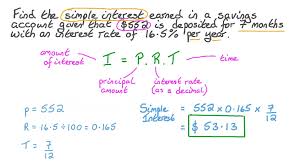 Find the simple interest earned in a savings
account given that $552 is deposited for 7 months
with an interest rate of 16.5% per year.
amount of interest
I = P.R.T
time
principal amount
interest rate (as a decimal)
P = 552
R = 16.5 ÷ 100 = 0.165
T = 7/12
Simple Interest = 552 × 0.165 × 7/12
= $ 53.13